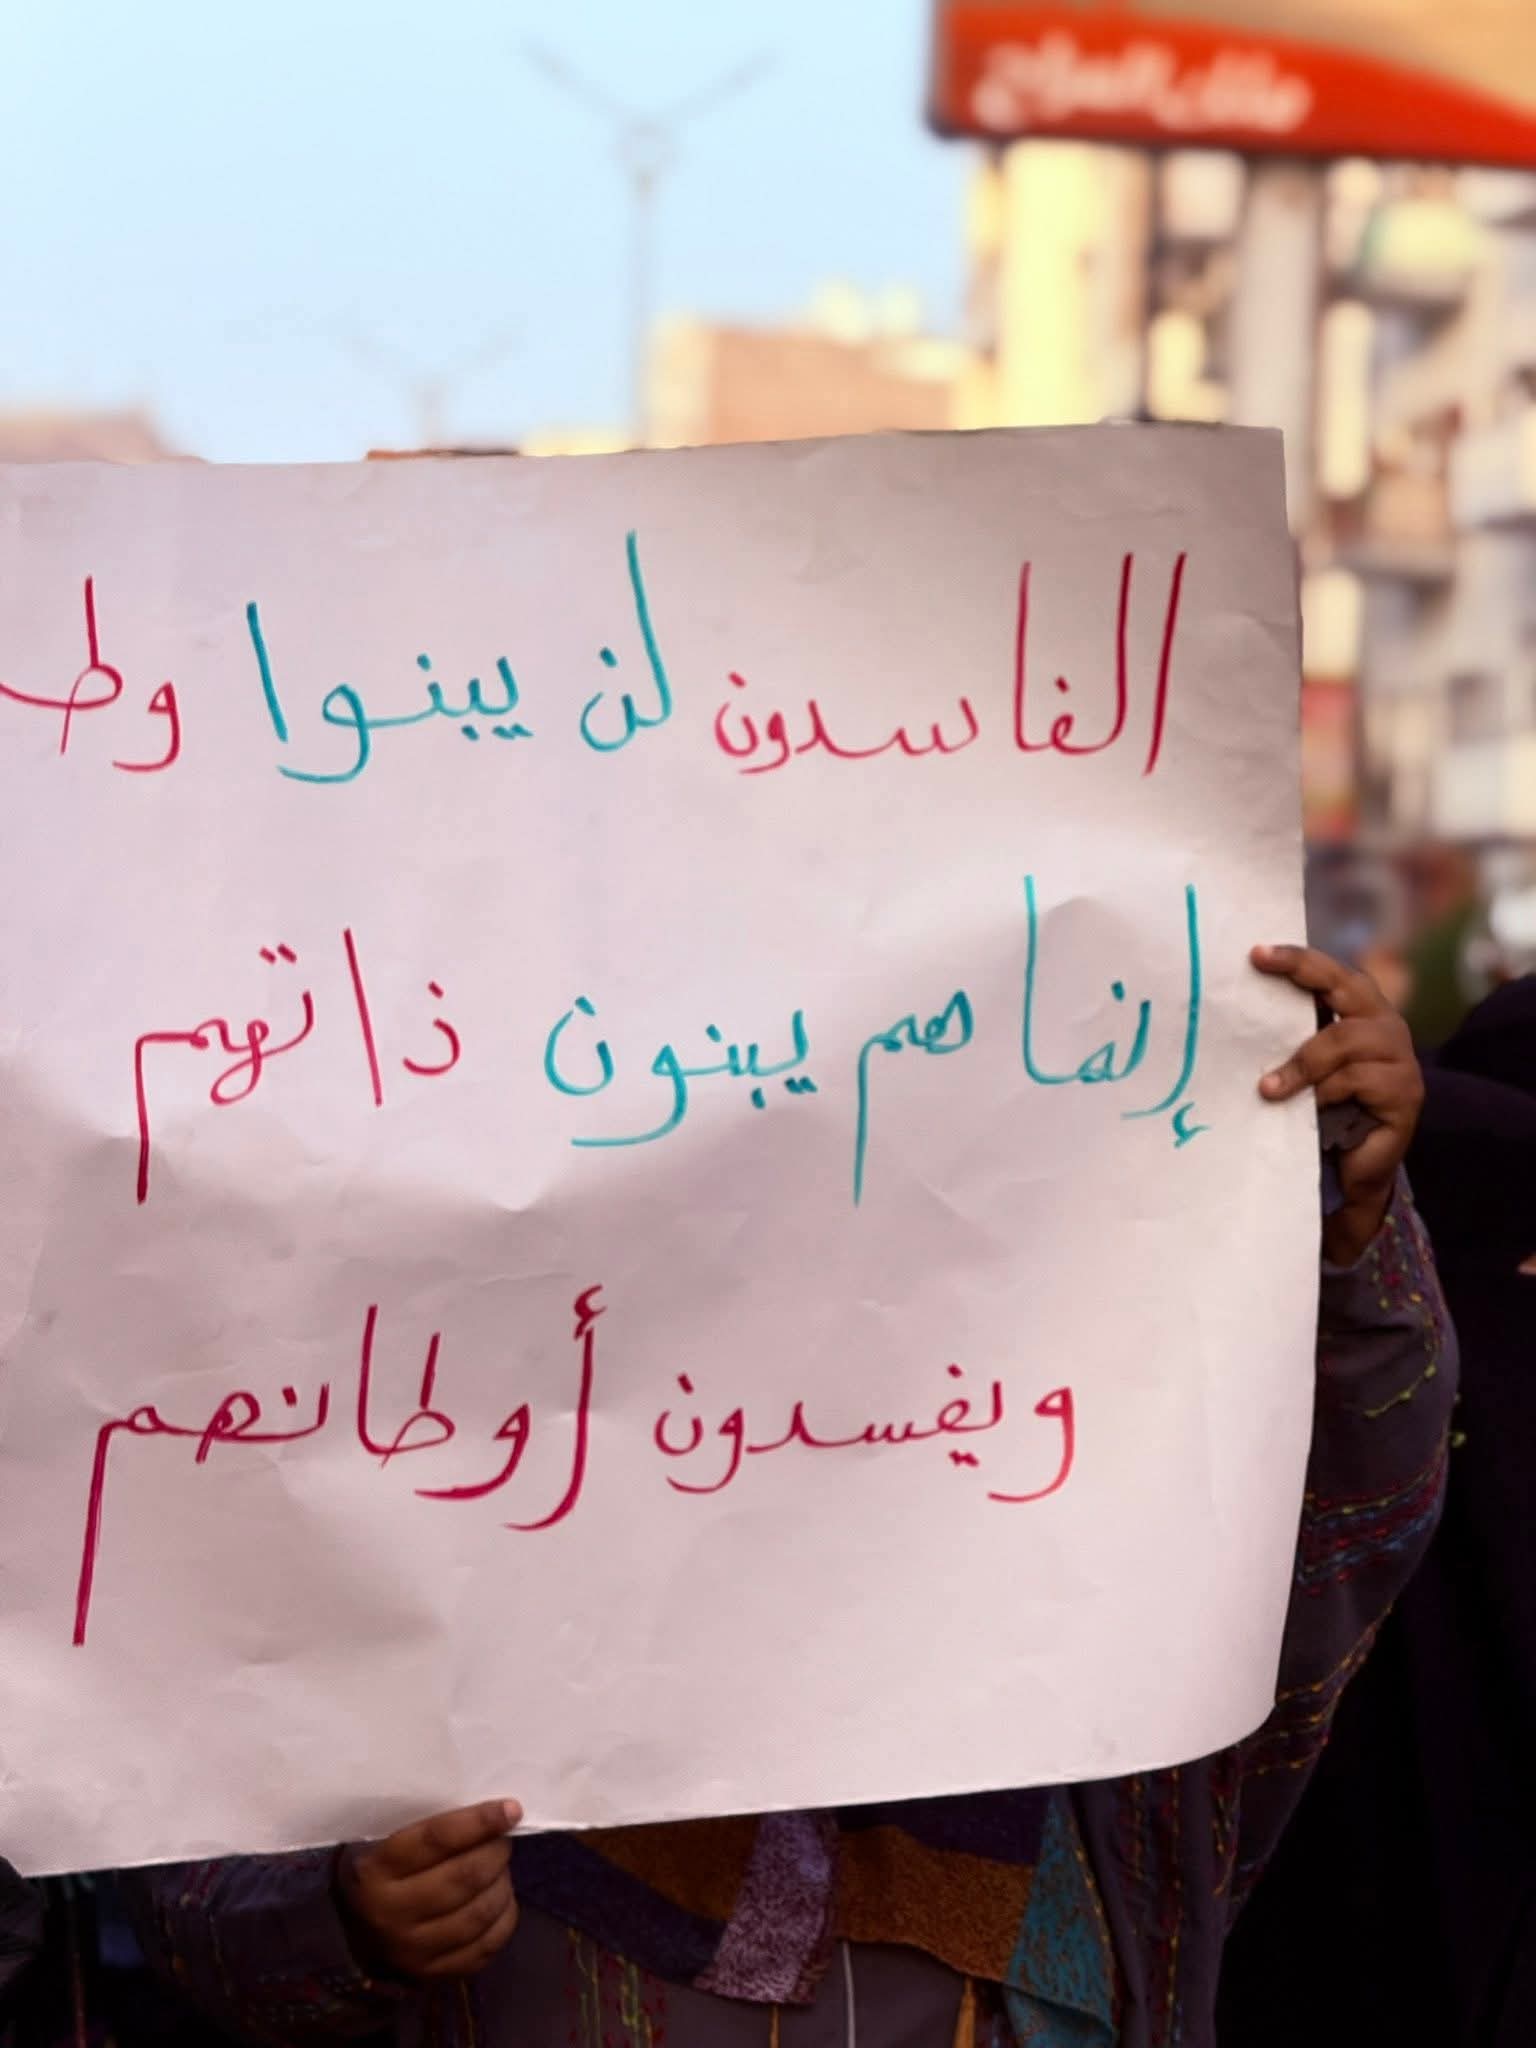 الفاسدون لن يبنوا وط
إنما هم يبنون ذاتهم
ويفسدون أوطانهم